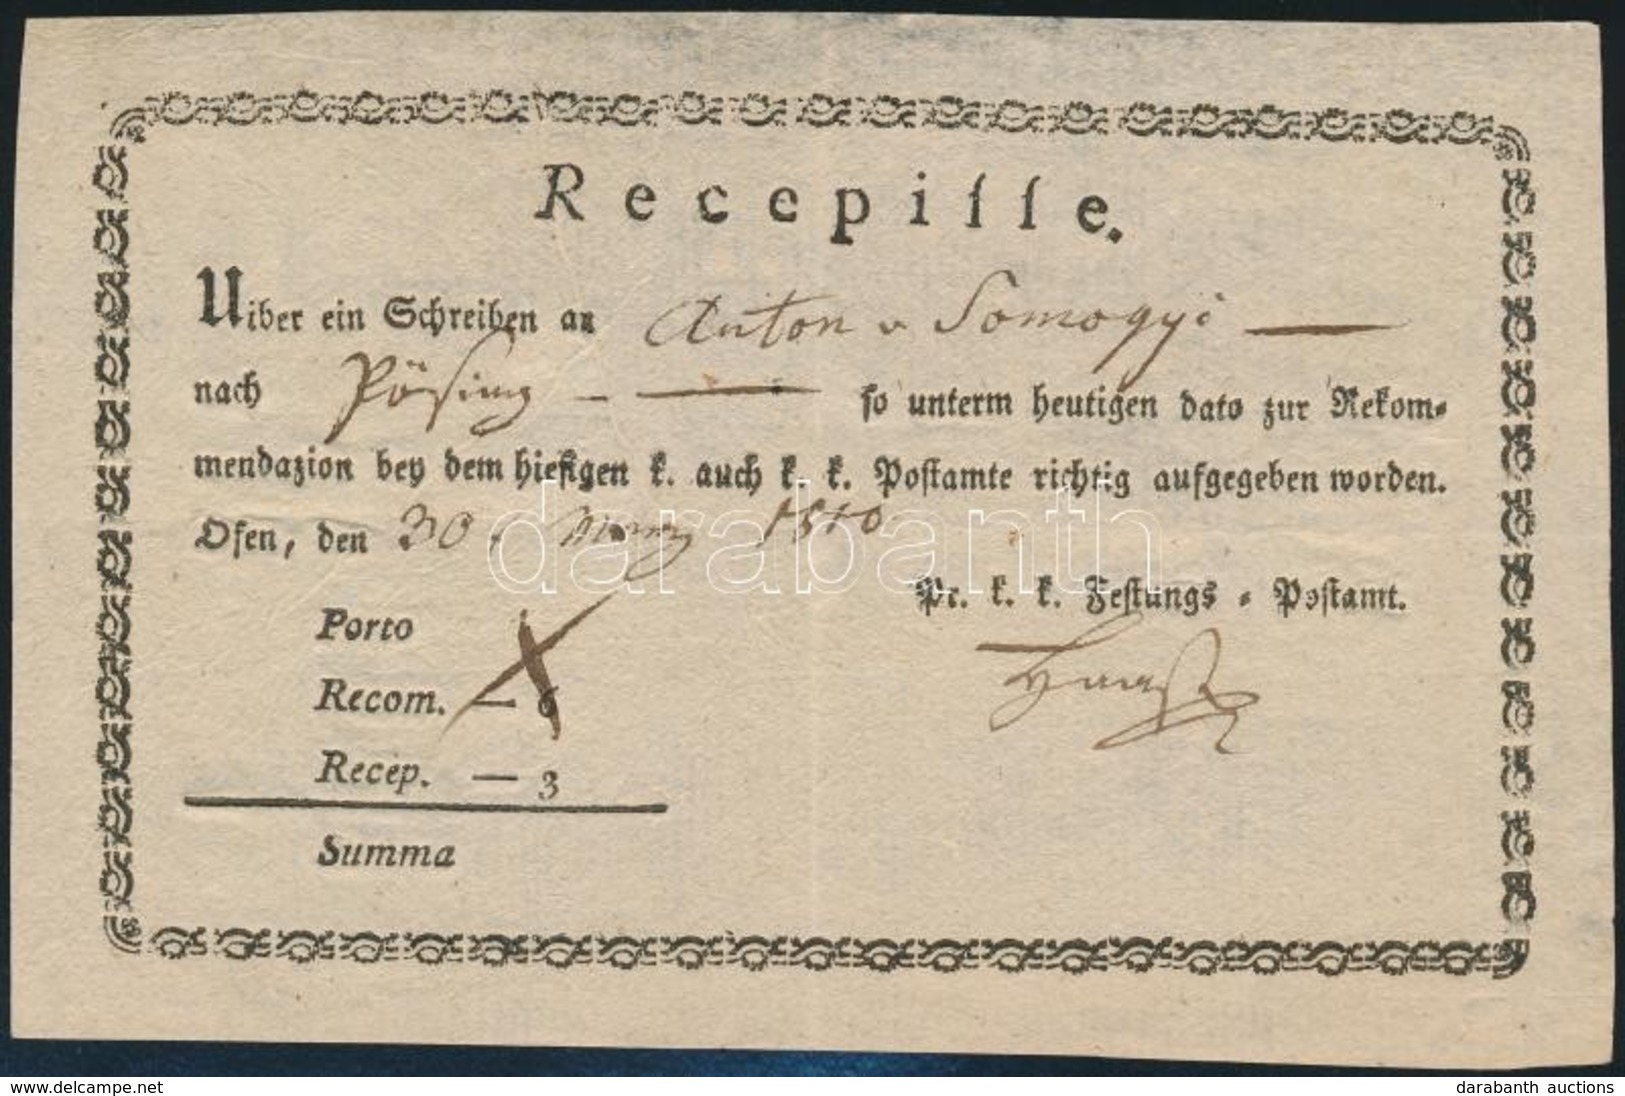 Recepisse.
Uiber ein Schreiben an Anton v Somogyi
nach Pösing so unterm heutigen dato zur Rekom=
mendazion bey dem hiesigen k. auch k. k. Postamte richtig aufgegeben worden.
Ofen, den 30. März 1810
Pr. k. k. Festungs = Postamt.
Porto
Recom. — 6
Recep. — 3
Summa
darabanth
www.delcampe.net
darabanth auctions